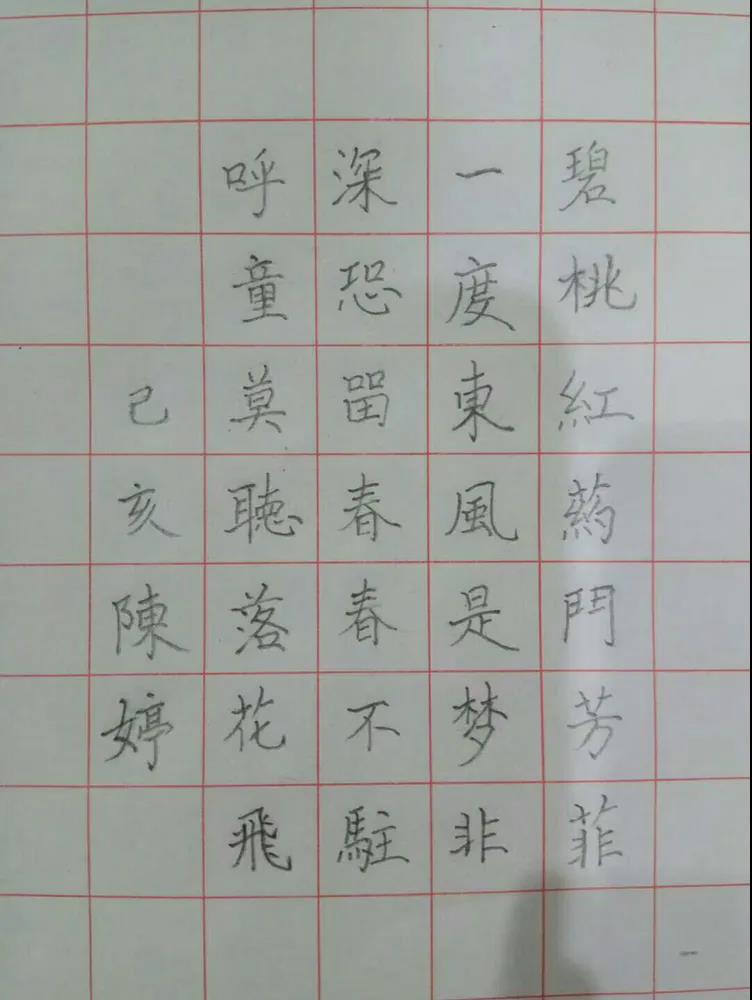 碧桃紅葯鬥芳菲
一度東風是梦非
深恐畱春春不駐
呼童莫聽落花飛
己亥陳婷